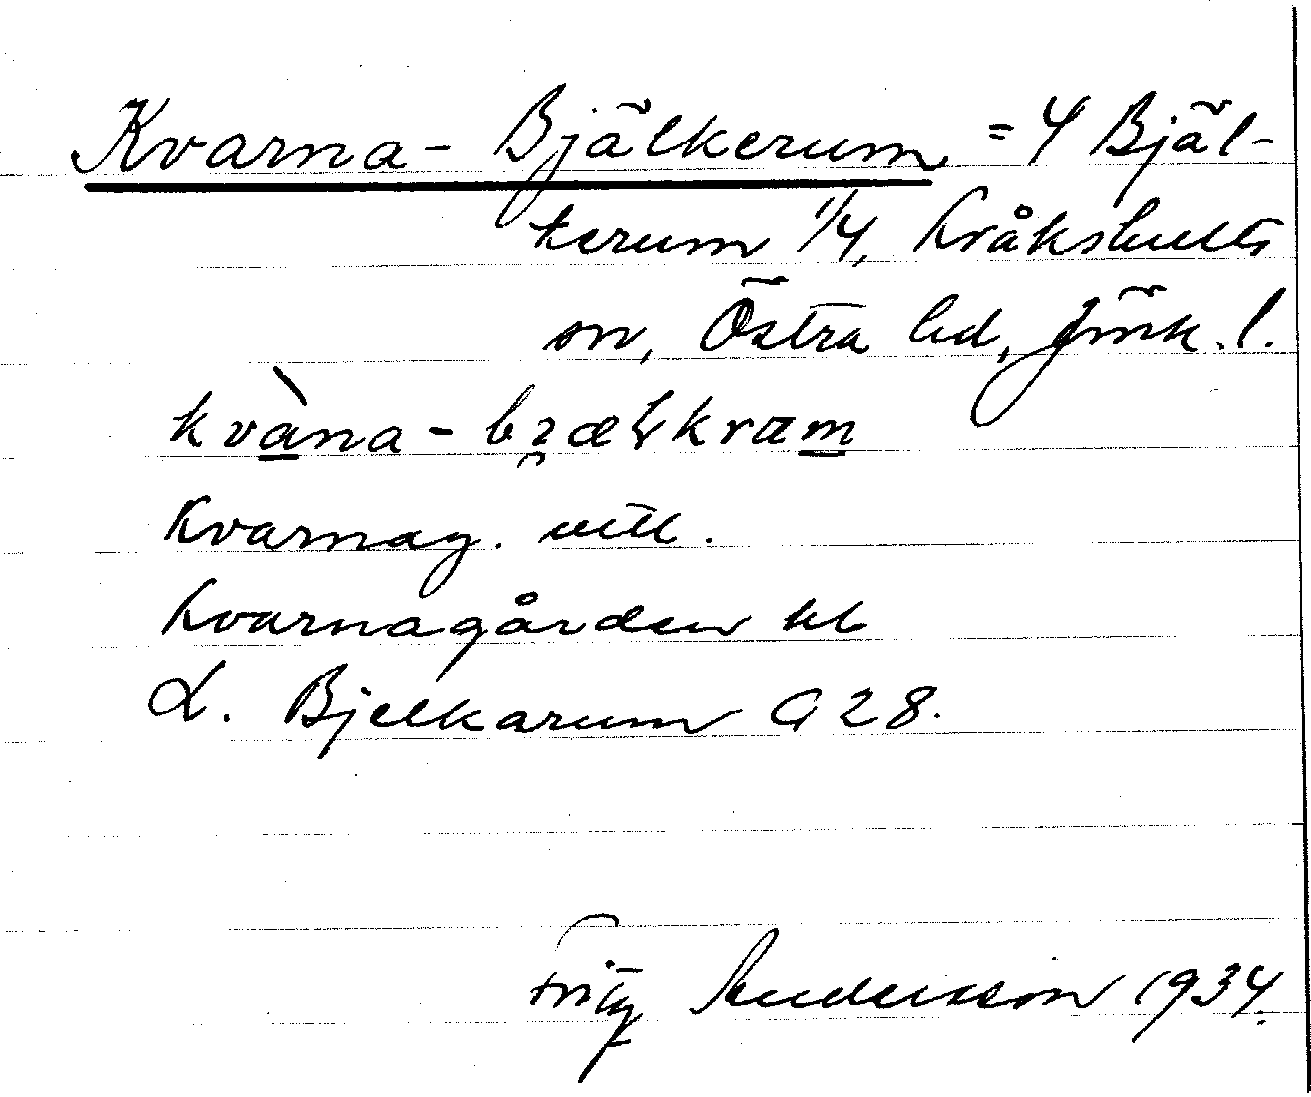 Kvarna-Bjälkerum = 4 Bjäl-
kerum 1/4, Kråkshults
sn, Östra hd, Jönk. l.
kvàna-bjælkram
Kvarnag. vill.
Kvarnagården hb
L. Bjelkarum G 28.
Fritz Andersson 1934.